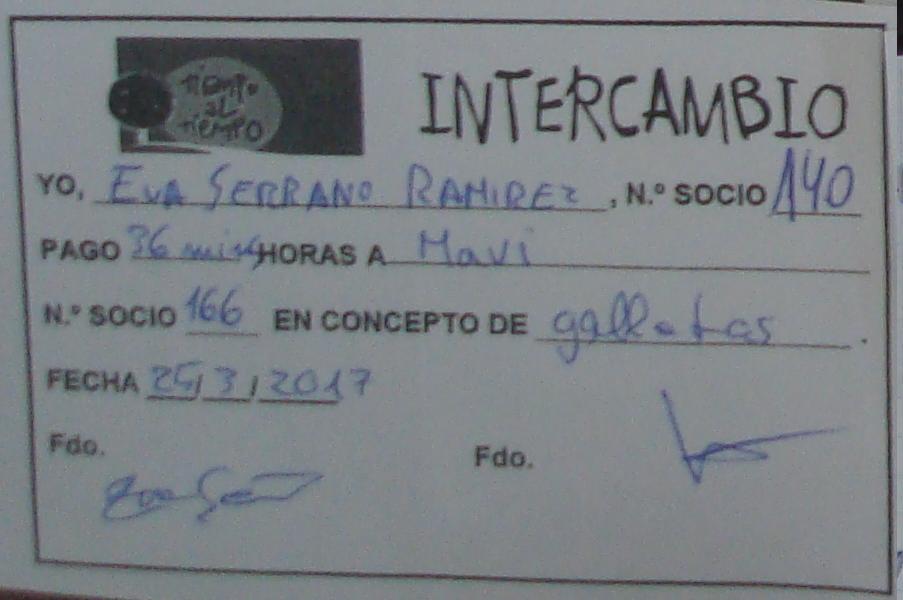 TIEMPO
AL
TIEMPO
INTERCAMBIO
YO, EVA SERRANO RAMIREZ, N.º SOCIO 140
PAGO 36 mins HORAS A Mavi
N.º SOCIO 166 EN CONCEPTO DE galletas.
FECHA 25/3/2017
Fdo. Fdo.